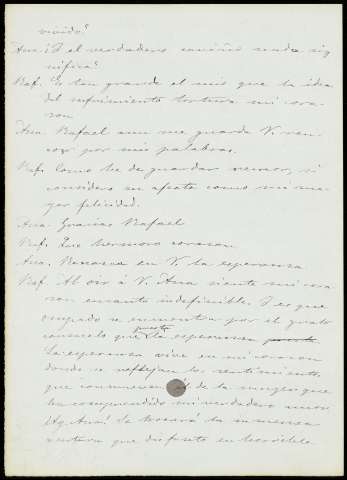 vivido?
Ana ¿Y el verdadero cariño nada sig
nifica?
Raf. Es tan grande el mio que la idea
del sufrimiento tortura mi cora-
zon
Ana. Rafael aun me guarda V. ren-
cor por mis palabras.
Raf. Como he de guardar rencor, si
considero su afecto como mi ma
yor felicidad.
Ana. Gracias Rafael
Raf. Que hermoso corazon
Ana. Renazca en V. la esperanza
Raf. Al oir á V. Ana siente mi cora
zon encanto indefinible. Y es que
cuando se encuentra por el grato
consuelo que presta la esperanza
La esperanza vive en mi corazon
donde se reflejan los sentimientos
que conmueven el de la mujer que
ha comprendido mi verdadero amor
¡Ay Ana! Se trocará la inmensa
ventura que disfruto en horrible